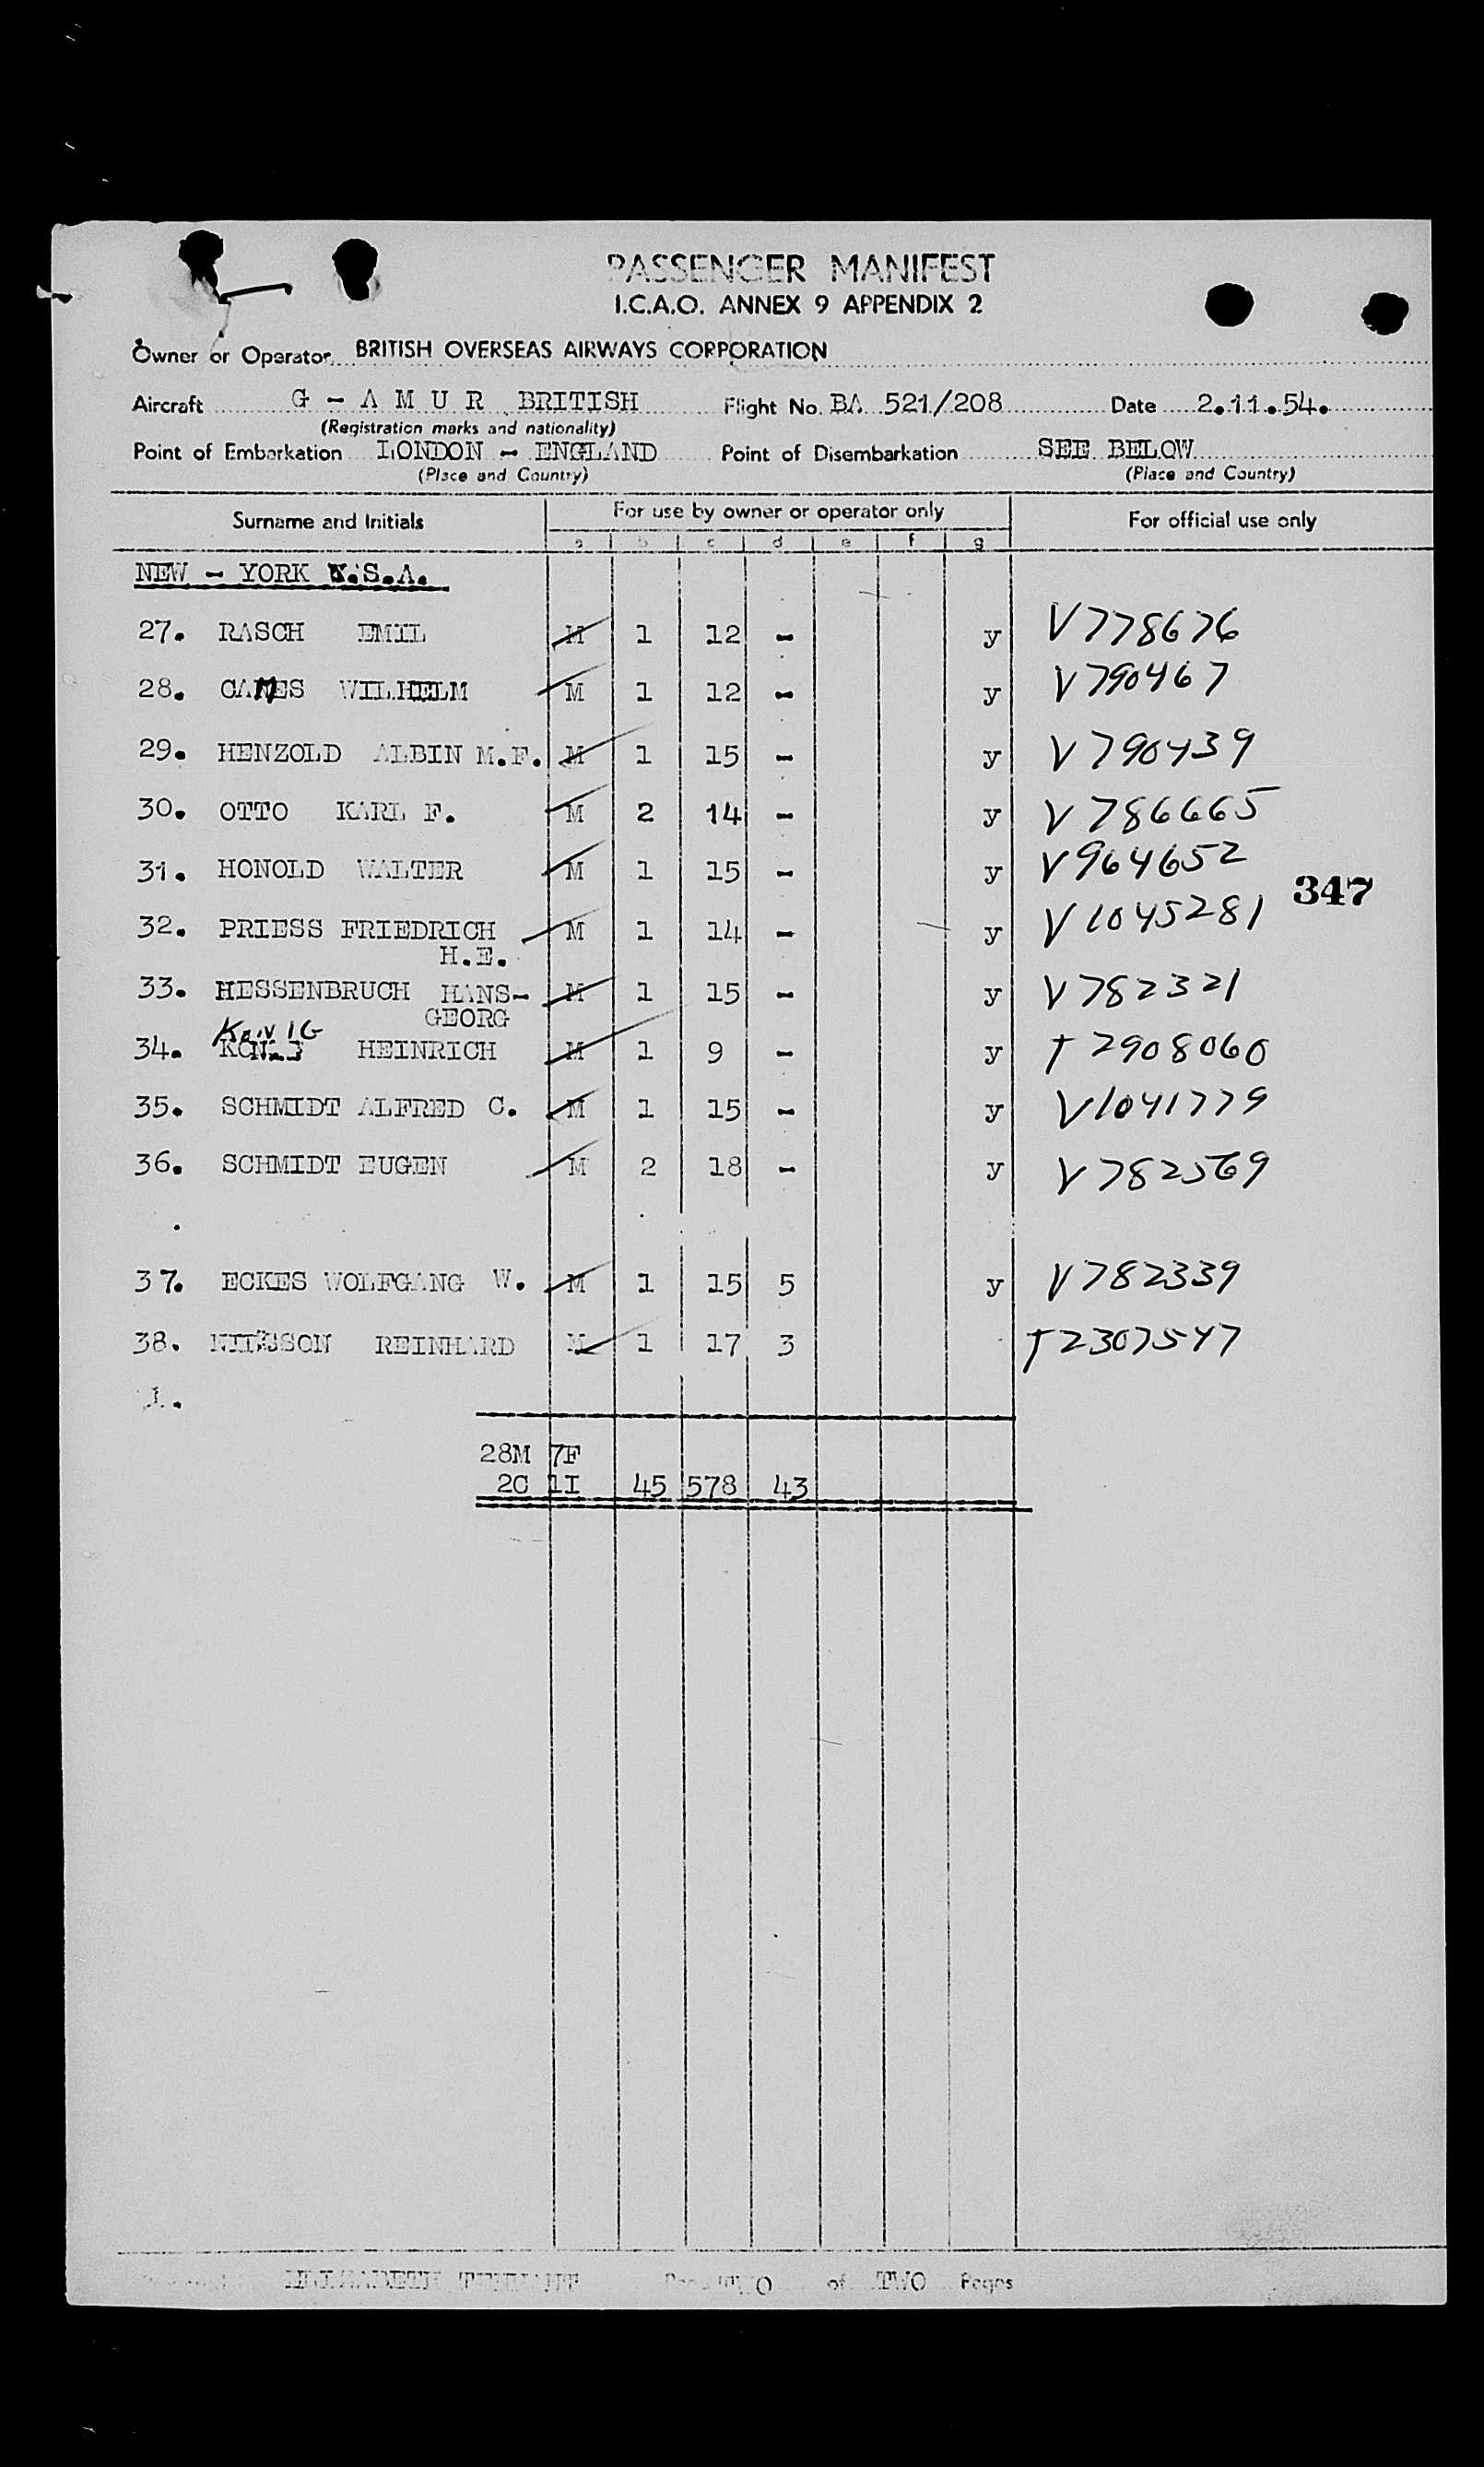 PASSENGER MANIFEST
I.C.A.O. ANNEX 9 APPENDIX 2
Owner or Operator BRITISH OVERSEAS AIRWAYS CORPORATION
Aircraft G - A M U R BRITISH Flight No. BA 521/208 Date 2.11.54.
(Registration marks and nationality)
Point of Embarkation LONDON - ENGLAND Point of Disembarkation SEE BELOW
(Place and Country) (Place and Country)
Surname and Initials For use by owner or operator only For official use only
a b c d e f g
NEW - YORK U.S.A.
27. RASCH EMIL M 1 12 - y V778676
28. CAMES WILHELM M 1 12 - y V790467
29. HENZOLD ALBIN M.F. M 1 15 - y V790439
30. OTTO KARL F. M 2 14 - y V786665
31. HONOLD WALTER M 1 15 - y V964652
347
32. PRIESS FRIEDRICH M 1 14 - y V1045281
H.E.
33. HESSENBRUCH HANS- M 1 15 - y V782321
GEORG
34. HEINRICH M 1 9 - y T2908060
35. SCHMIDT ALFRED C. M 1 15 - y V1041779
36. SCHMIDT EUGEN M 2 18 - y V782569
37. ECKES WOLFGANG W. M 1 15 5 y V782339
38. REINHARD M 1 17 3 T2307547
1.
28M 7F
2C 1I 45 578 43
ELIZABETH TWO of TWO Pages